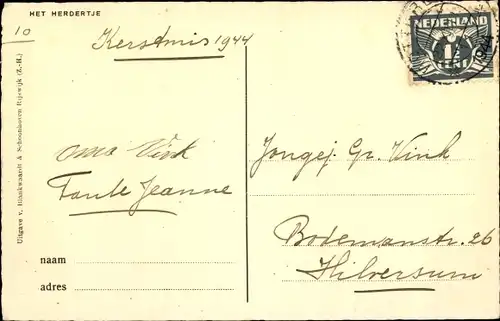 HET HERDERTJE
10
Kerstmis 1944
Oma Vink
Tante Jeanne
naam
adres
Uitgave v. Blankwaardt & Schoonhoven Rijswijk (Z.-H.)
NEDERLAND
1½
1944
Jongej. Gr. Vink
Bodemanstr. 26
Hilversum